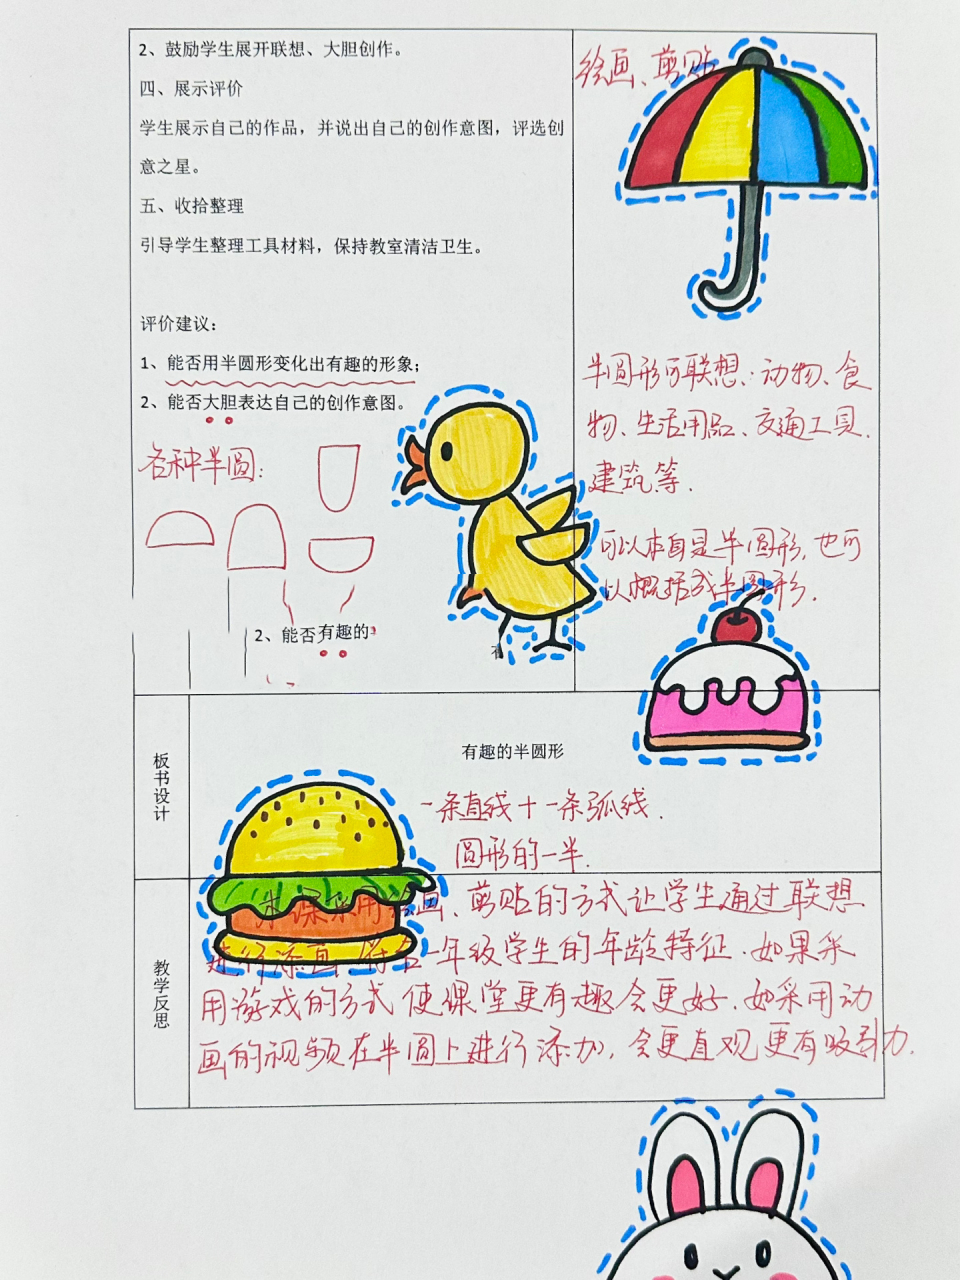 2、鼓励学生展开联想、大胆创作。
四、展示评价
学生展示自己的作品，并说出自己的创作意图，评选创
意之星。
五、收拾整理
引导学生整理工具材料，保持教室清洁卫生。
评价建议：
1、能否用半圆形变化出有趣的形象；
2、能否大胆表达自己的创作意图。
各种半圆：
2、能否有趣的
绘画、剪贴
半圆形可联想：动物、食
物、生活用品、交通工具、
建筑等.
可以本身是半圆形，也可
以概括成半圆形.
板书设计
有趣的半圆形
一条直线十一条弧线.
圆形的一半.
教学反思
本课采用绘画、剪贴的方式让学生通过联想
进行添画.符合一年级学生的年龄特征.如果采
用游戏的方式使课堂更有趣会更好.如采用动
画的视频在半圆上进行添加，会更直观更有吸引力.